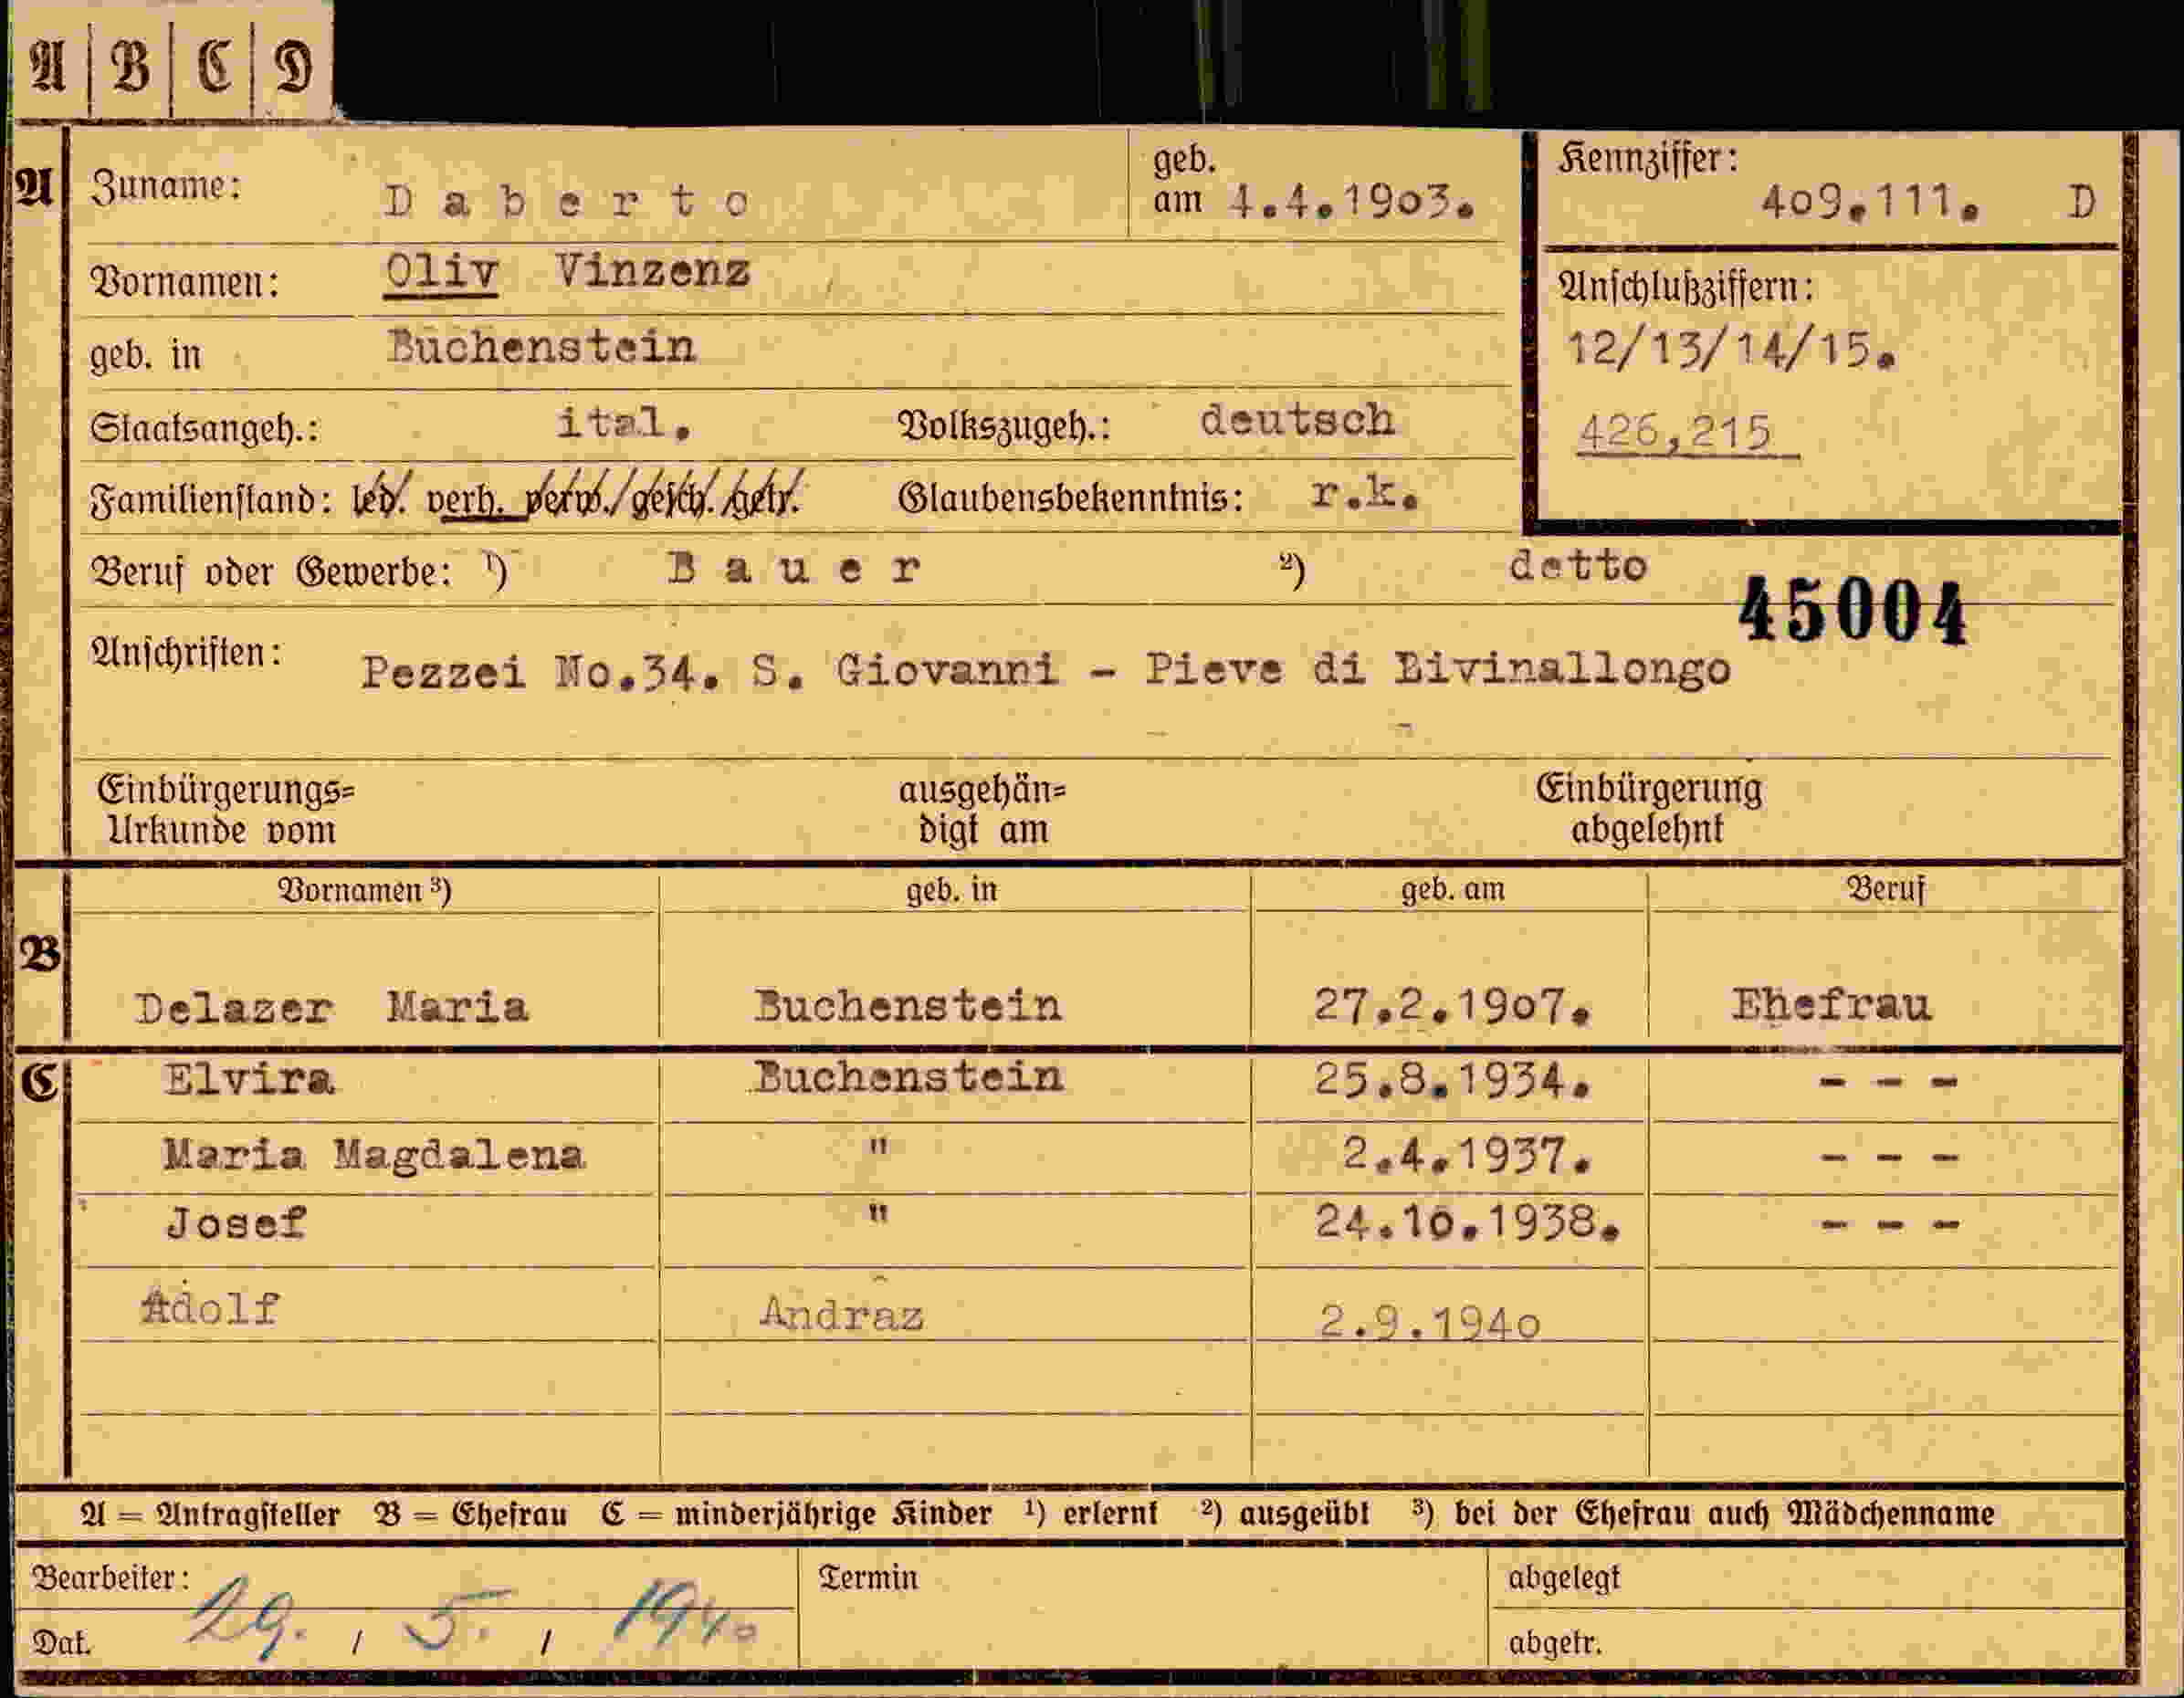 A B C D
A Zuname: Daberto geb. am 4.4.1903. Kennziffer: 409.111. D
Vornamen: Oliv Vinzenz
Anschlußziffern:
geb. in Buchenstein 12/13/14/15.
Staatsangeh.: ital. Volkszugeh.: deutsch 426,215
Familienstand: led. verh. verw./gesch./getr. Glaubensbekenntnis: r.k.
Beruf oder Gewerbe: ¹) Bauer ²) detto
45004
Anschriften: Pezzei No.34. S. Giovanni - Pieve di Livinallongo
Einbürgerungs= ausgehän= Einbürgerung
Urkunde vom digt am abgelehnt
Vornamen ³) geb. in geb. am Beruf
B
Delazer Maria Buchenstein 27.2.1907. Ehefrau
C Elvira Buchenstein 25.8.1934. - - -
Maria Magdalena " 2.4.1937. - - -
Josef " 24.10.1938. - - -
Adolf Andraz 2.9.1940
A = Antragsteller B = Ehefrau C = minderjährige Kinder ¹) erlernt ²) ausgeübt ³) bei der Ehefrau auch Mädchenname
Bearbeiter: Termin abgelegt
Dat. 29. / 5. / 1940 abgetr.